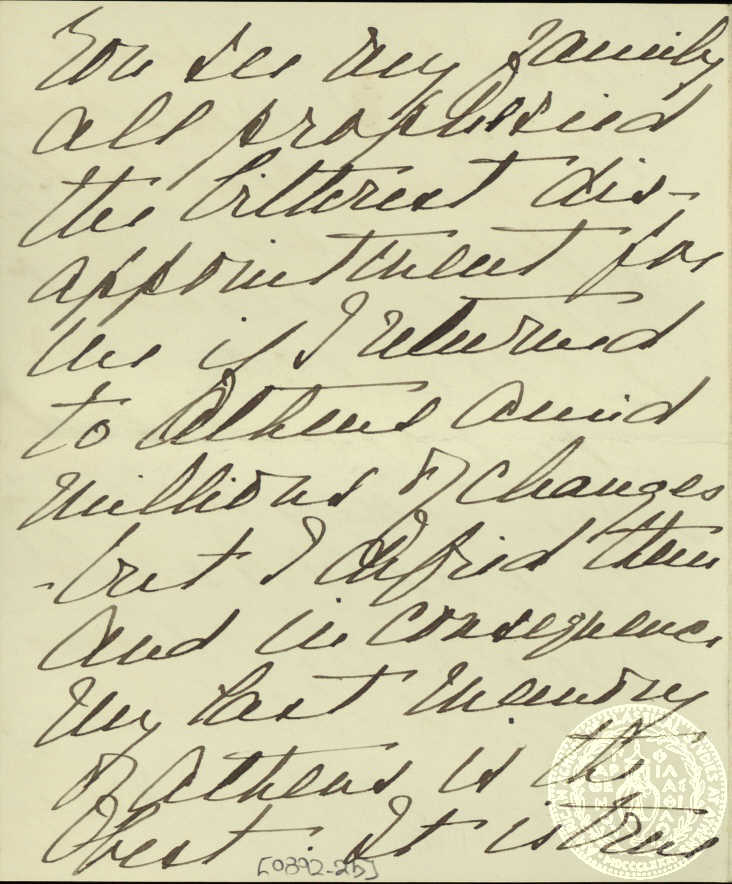 You see my family
all prophesied
the bitterest dis-
appointment for
me if I returned
to Athens amid
millions of changes
- but I defied them
and in consequence
my last memory
of Athens is the
best. It is true
[0392-2b]